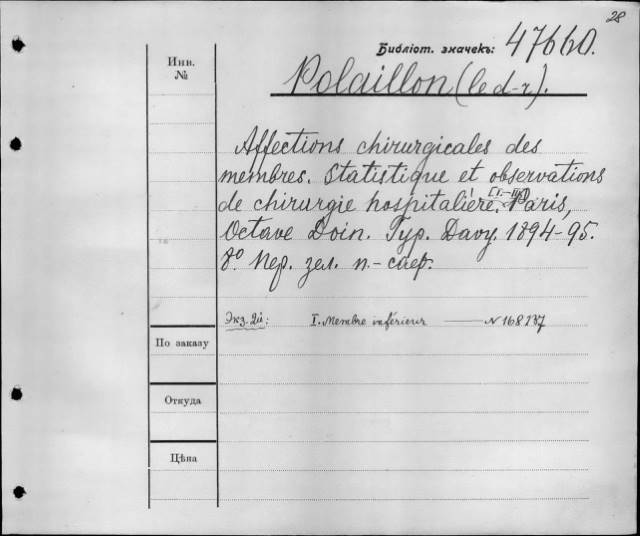 28
Библіот. значекъ: 47660.
Инв. №
Polaillon (le d-r).
Affections chirurgicales des
membres. Statistique et observations
de chirurgie hospitalière. [I.-II] Paris,
Octave Doin. Typ. Davy. 1894-95.
8º. Пер. зел. п.-саф.
Экз. 2й: I. Membre inférieur — N 168237
По заказу
Откуда
Цѣна